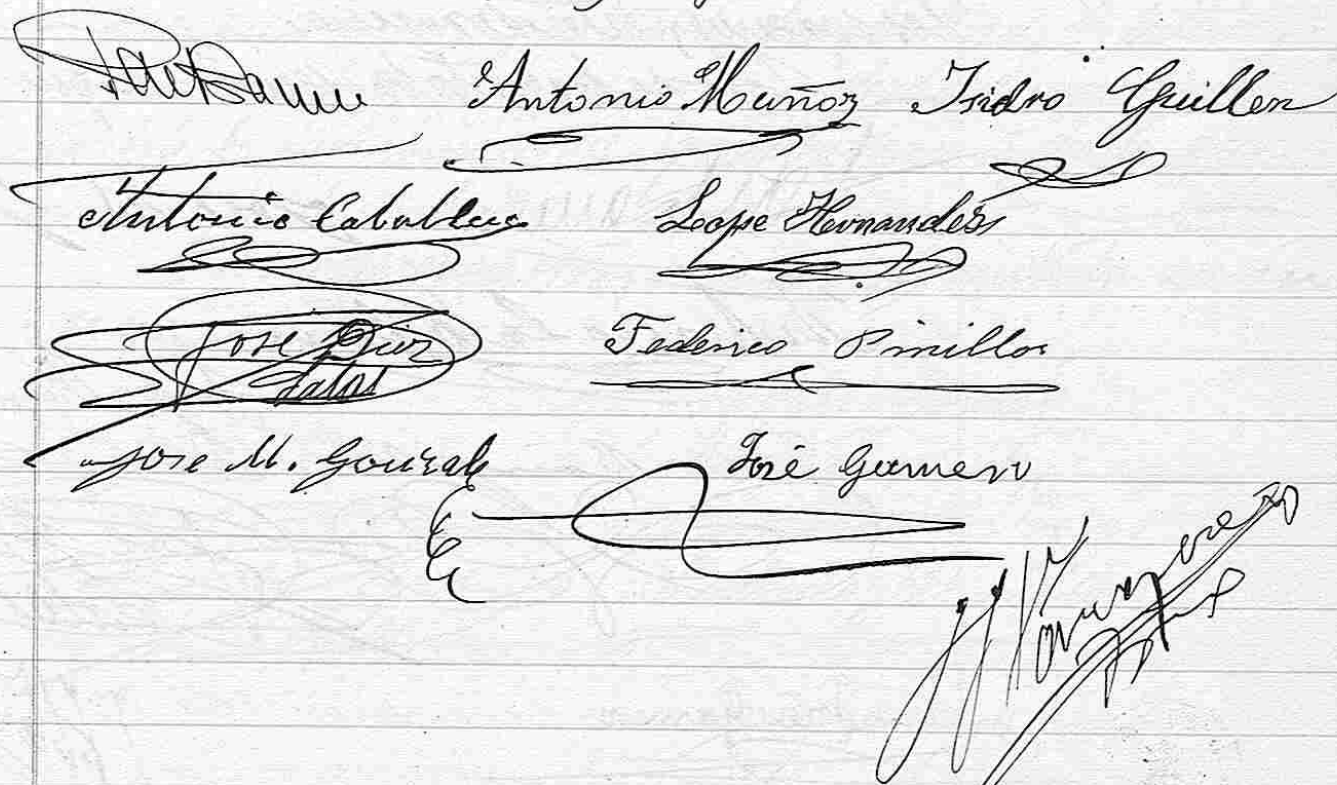 Antonio Muñoz Isidro Guillen
Antonio Caballero Lope Hernandez
Jose Diaz Federico Pinillos
Salas
Jose M. Gonzalz José Gamero